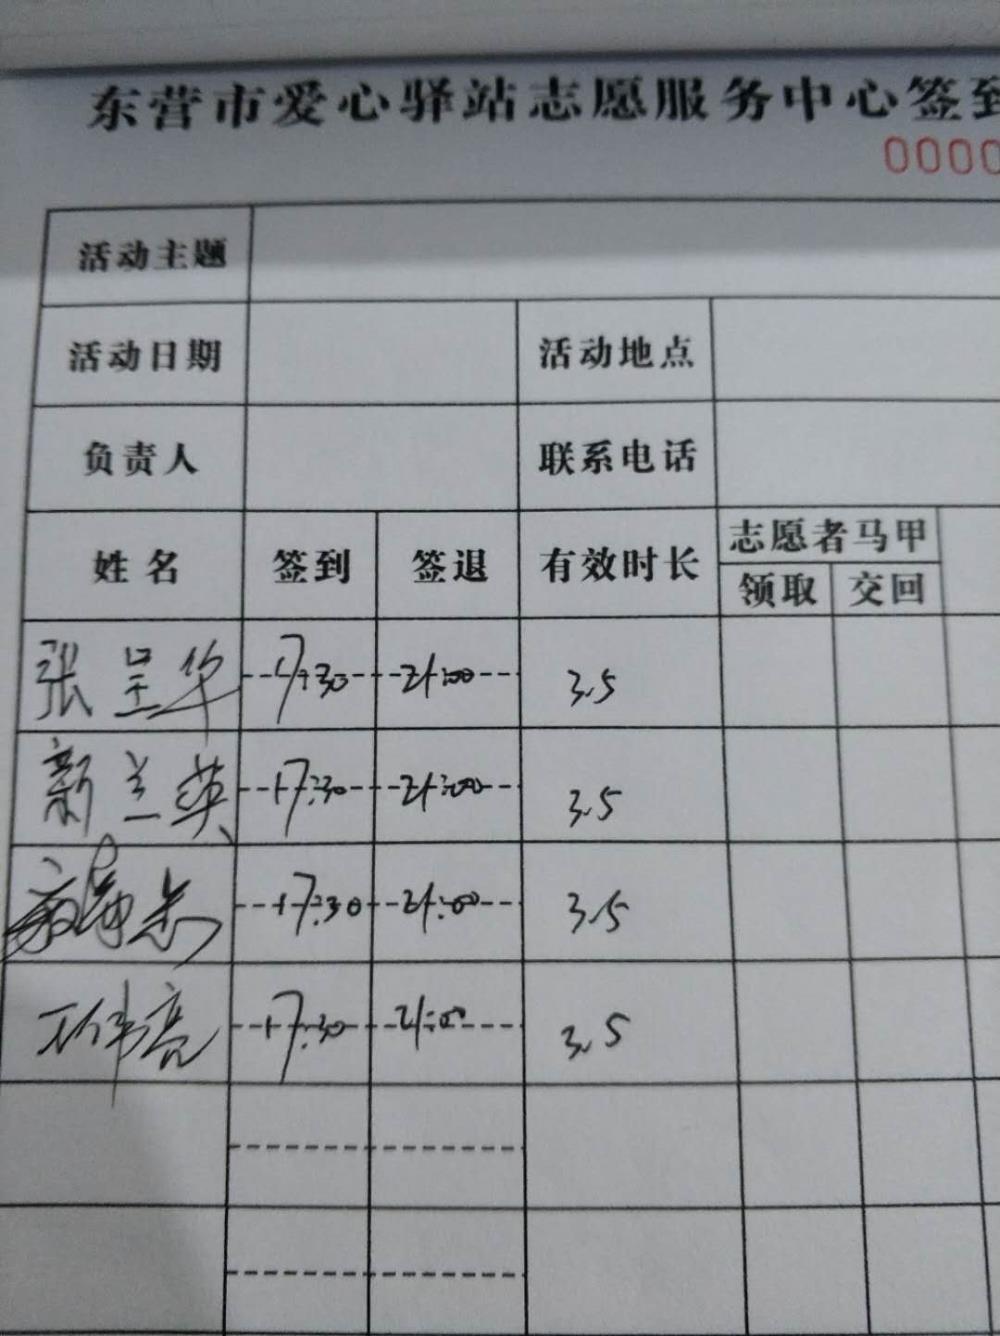 东营市爱心驿站志愿服务中心签到
0000
活动主题
活动日期 活动地点
负责人 联系电话
姓名 签到 签退 有效时长 志愿者马甲
领取 交回
张呈华 17:30 21:00 3.5
新兰英 17:30 21:00 3.5
17:30 21:00 3.5
王伟亮 17:30 21:00 3.5